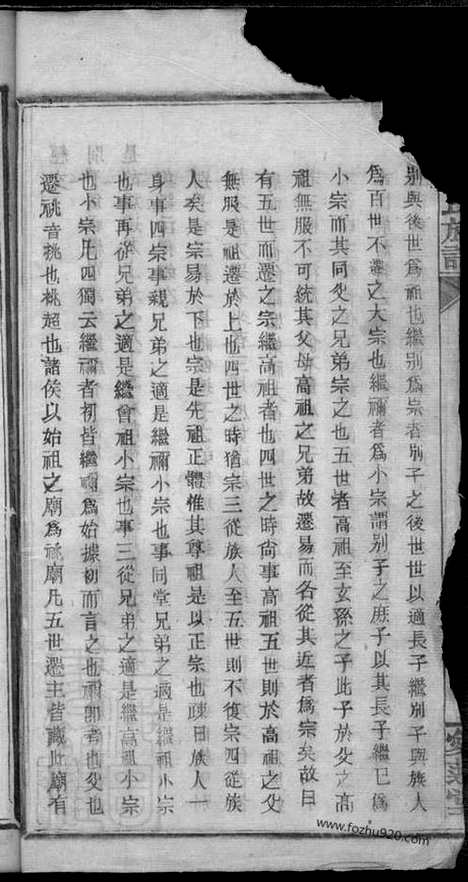 別與後世爲祖也繼別爲宗者別子之後世世以適長子繼別子與族人
爲百世不遷之大宗也繼禰者爲小宗謂別子之庶子以其長子繼已爲
小宗而其同父之兄弟宗之也五世者高祖至玄孫之子此子於父之高
祖無服不可統其父母高祖之兄弟故遷易而名從其近者爲宗矣故曰
有五世而遷之宗繼高祖者也四世之時尙事高祖五世則於高祖之父
無服是祖遷於上也四世之時猶宗三從族人至五世則不復宗四從族
人矣是宗易於下也宗是先祖正體惟其尊祖是以正宗也疎曰族人一
身事四宗事親兄弟之適是繼禰小宗也事同堂兄弟之適是繼祖小宗
也事再從兄弟之適是繼會祖小宗也事三從兄弟之適是繼高祖小宗
也小宗凡四獨云繼禰者初皆繼禰爲始據初而言之也禰卽者也父也
遷祧音挑也祧超也諸侯以始祖之廟爲祧廟凡五世遷主皆藏此廟有
族譜
堂
www.fozhu920.com